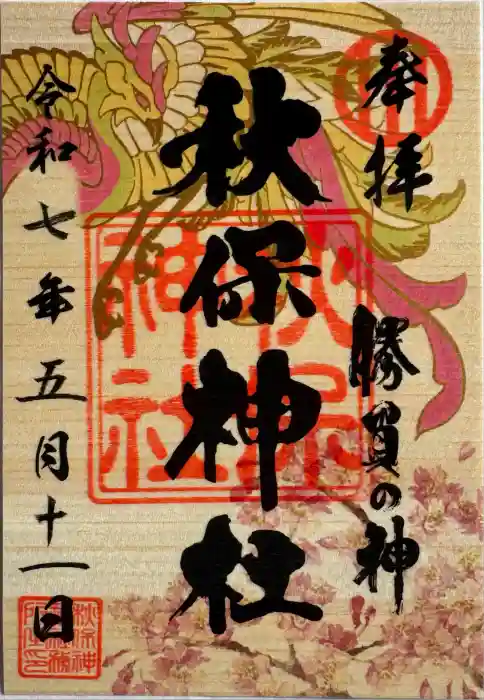 奉拝
勝負の神
秋保神社
令和七年五月十一日
秋保神社